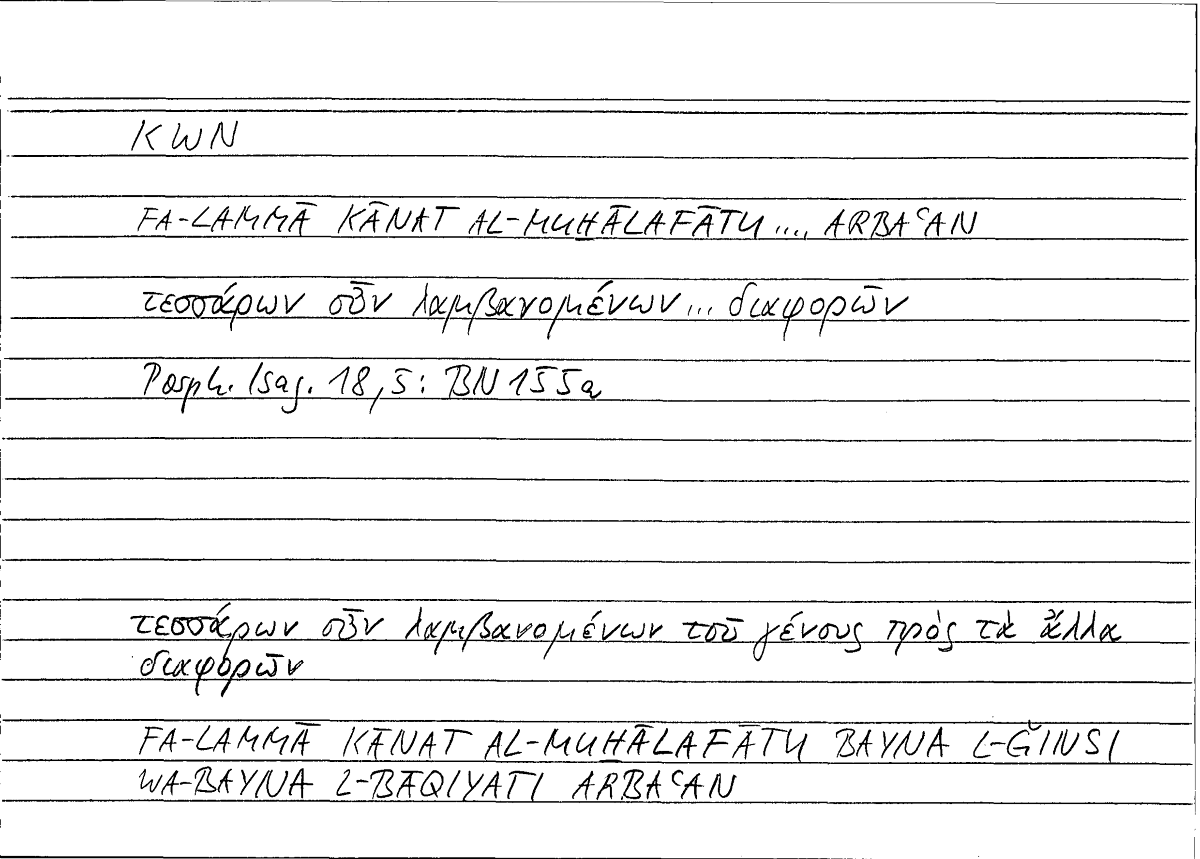 KWN
FA-LAMMĀ KĀNAT AL-MUḪĀLAFĀTU .... ARBAʿAN
τεσσάρων οὖν λαμβανομένων ... διαφορῶν
Porph. Isag. 18,5: BN 155a
τεσσάρων οὖν λαμβανομένων τοῦ γένους πρὸς τὰ ἄλλα
διαφορῶν
FA-LAMMĀ KĀNAT AL-MUḪĀLAFĀTU BAYNA L-ǦINSI
WA-BAYNA L-BĀQIYATI ARBAʿAN